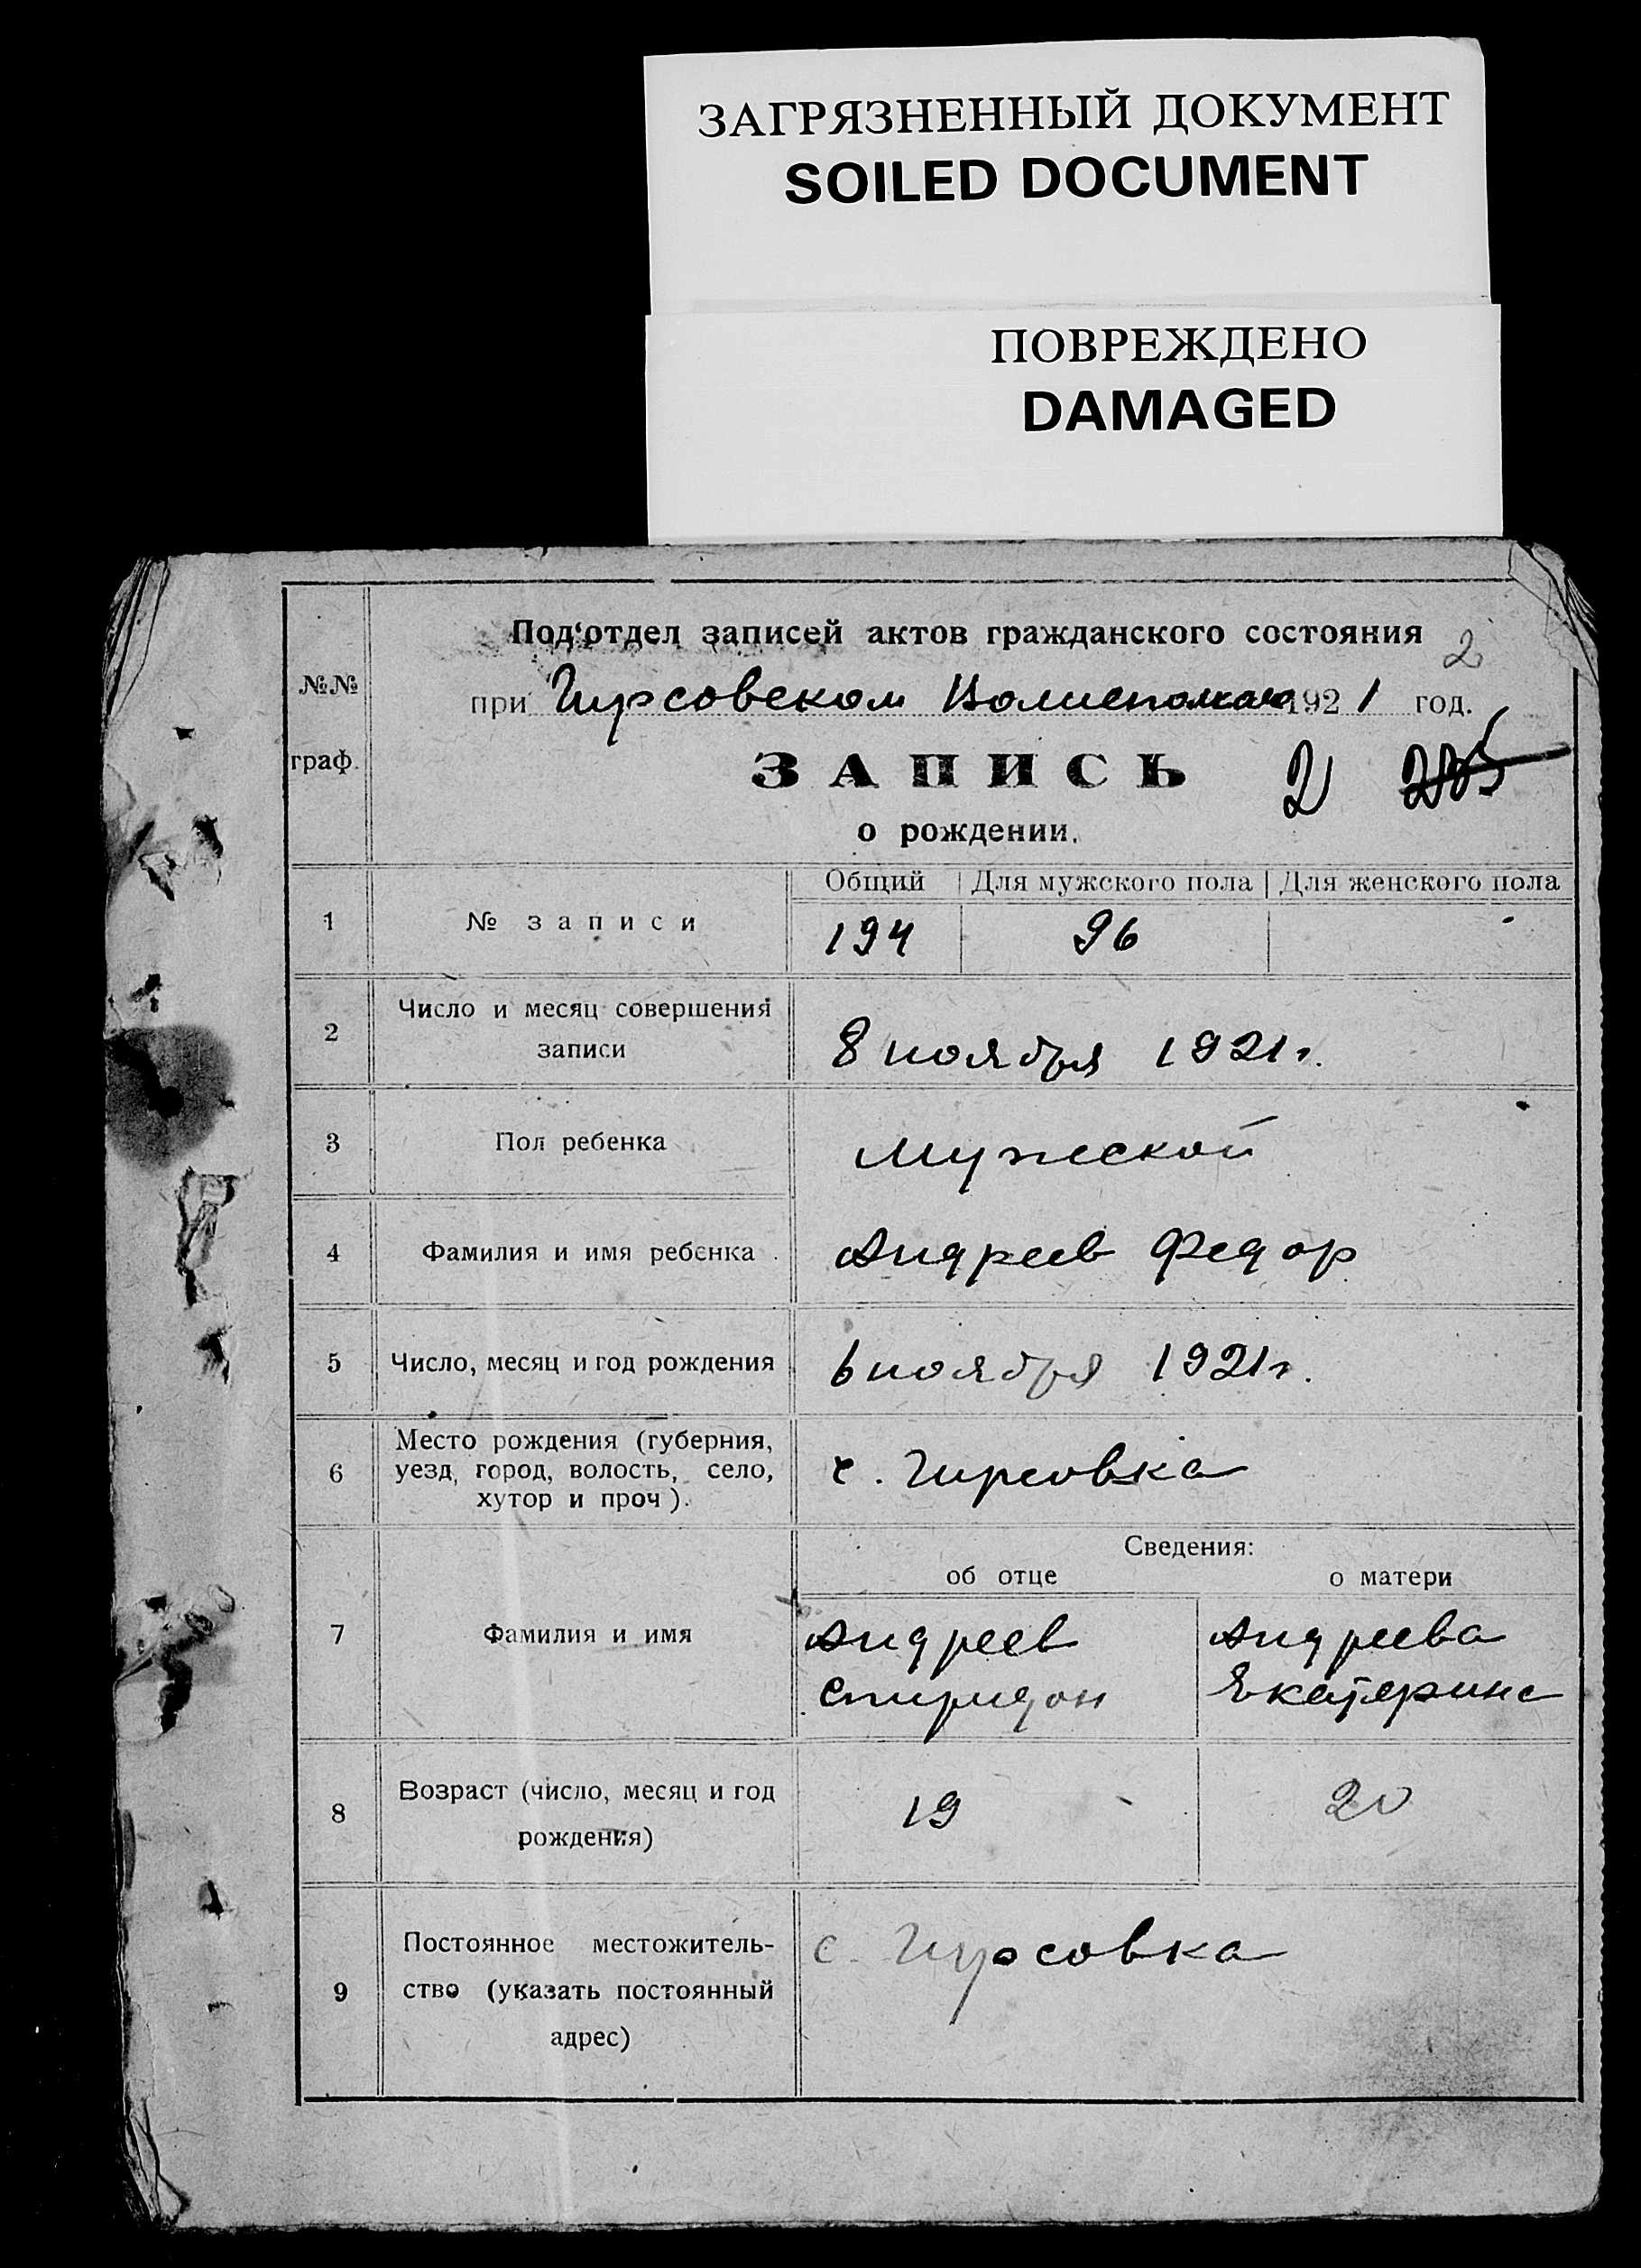 ЗАГРЯЗНЕННЫЙ ДОКУМЕНТ
SOILED DOCUMENT
ПОВРЕЖДЕНО
DAMAGED
Под‘отдел записей актов гражданского состояния
2
№№ граф.
при Гирсовском 1921 год.
ЗАПИСЬ 2
о рождении.
Общий Для мужского пола Для женского пола
1 № записи 194 96
2 Число и месяц совершения
записи 8 ноября 1921 г.
3 Пол ребенка мужской
4 Фамилия и имя ребенка Андреев Федор
5 Число, месяц и год рождения 6 ноября 1921 г.
6 Место рождения (губерния,
уезд, город, волость, село,
хутор и проч). с. Гирсовка
Сведения:
об отце о матери
7 Фамилия и имя Андреев Андреева
Спиридон Екатерина
8 Возраст (число, месяц и год
рождения) 19 20
9 Постоянное местожитель-
ство (указать постоянный
адрес) с. Гирсовка